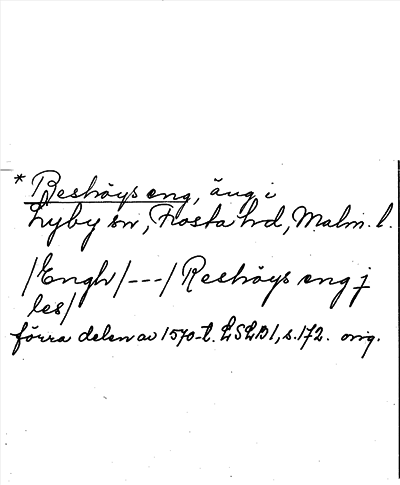 * Beshöys eng, äng i
Lyby sn, Frosta hd, Malm. l.
/Engh/---/Reshöys eng j
les/
förra delen av 1570-t. LSLB1, s. 172. orig.